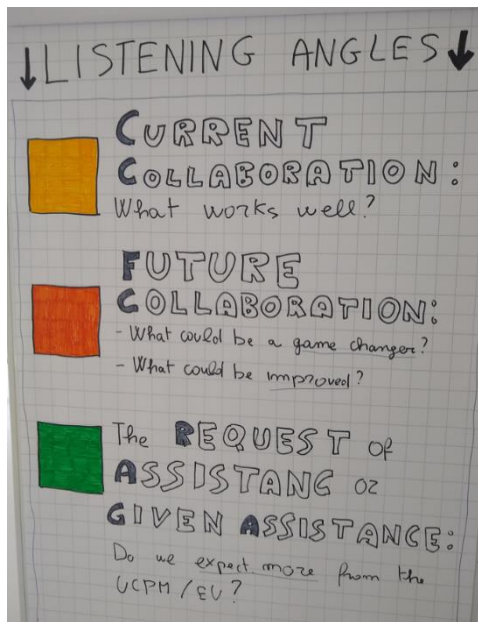 LISTENING ANGLES
CURRENT
COLLABORATION:
What works well?
FUTURE
COLLABORATION:
- What could be a game changer?
- What could be improved?
The REQUEST of
ASSISTANC or
GIVEN ASSISTANCE:
Do we expect more from the
UCPM/EU?